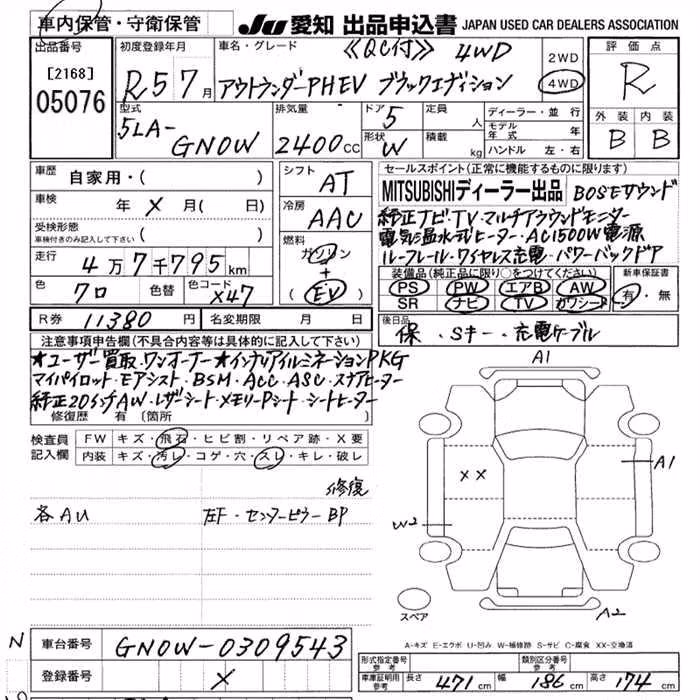 車内保管・守衛保管
JU 愛知 出品申込書 JAPAN USED CAR DEALERS ASSOCIATION
出品番号 [2168] 05076
初度登録年月 R5 7月
車名・グレード 《QC付》 4WD
アウトランダーPHEV ブラックエディション
2WD 4WD
評価点 R
外装 B 内装 B
型式 5LA-GN0W
排気量 2400cc
ドア 5
形状 W
定員 人
積載 kg
ディーラー・並行
モデル年式 年
ハンドル 左・右
車歴 自家用・( )
車検 年 X 月( 日)
受検形態 車検付きのみ記入して下さい ( )
走行 4万7千795km
色 クロ 色替 色コード X47
シフト AT
冷房 AAC
燃料 ガソリン + (EV)
セールスポイント(正常に機能するものに限ります)
MITSUBISHIディーラー出品 BOSEサウンド
純正ナビ・TV・マルチアラウンドモニター
電気温水式ヒーター・AC1500W電源
ルーフレール・ワイヤレス充電・パワーバックドア
装備品(純正品に限り○をつけてください) 新車保証書
PS PW エアB AW 有・無
SR ナビ TV カワシート
R券 11380円 名変期限 月 日
後日品 保・Sキー・充電ケーブル
注意事項申告欄(不具合内容等は具体的に記入して下さい)
★ユーザー買取・ワンオーナー★インテリアイルミネーションPKG
マイパイロット・Eアシスト・BSM・ACC・ASC・ステアヒーター
純正20インチAW・レザーシート・メモリーPシート・シートヒーター
修復歴 有 〔箇所 〕
検査員記入欄
FW キズ・飛石・ヒビ割・リペア跡・X要
内装 キズ・汚レ・コゲ・穴・スレ・キレ・破レ
修復
各AU 左F・センターピラーBP
A1
A1
XX
W2
A2
スペア
A-キズ E-エクボ U-凹み W-補修跡 S-サビ C-腐食 XX-交換済
N 車台番号 GN0W-0309543
登録番号 X
形式指定番号 参考 類別区分番号 参考
車庫証明用参考 長さ 471cm 幅 186cm 高さ 174cm